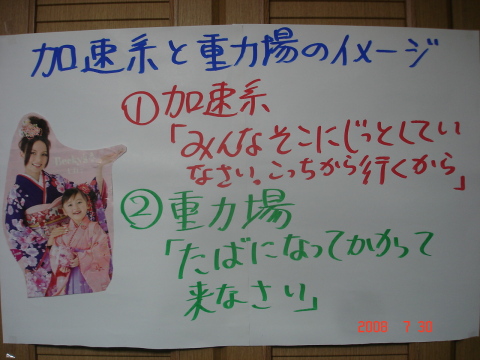 加速系と重力場のイメージ
①加速系
「みんなそこにじっとしてい
なさい。こっちから行くから」
②重力場
「たばになってかかって
来なさい」
2008 7 30